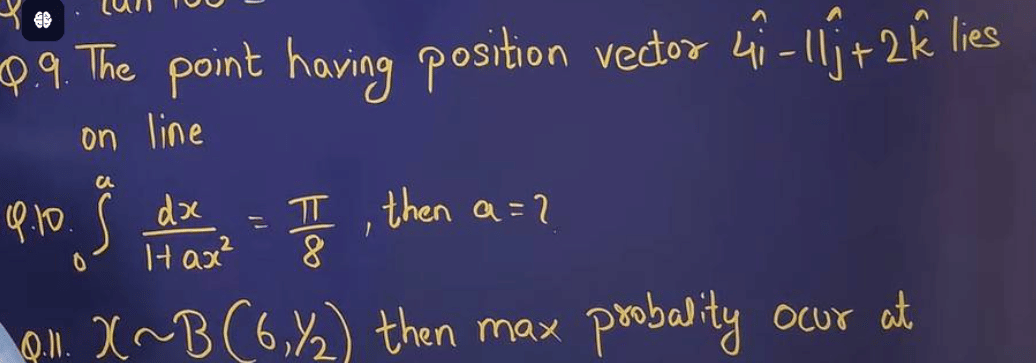 Q.9. The point having position vector 4î - 11ĵ + 2k̂ lies
on line
Q.10. ∫₀ᵃ dx/(1+ax²) = π/8, then a = ?
Q.11. X~B(6,1/2) then max probality ocur at